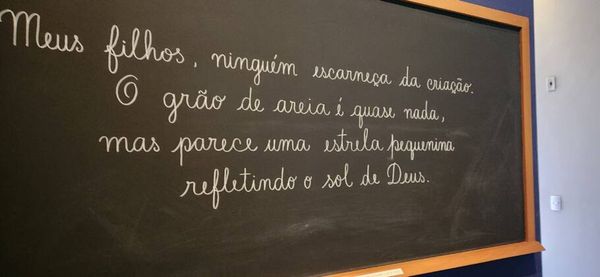 Meus filhos, ninguém escarneça da criação.
O grão de areia é quase nada,
mas parece uma estrela pequenina
refletindo o sol de Deus.